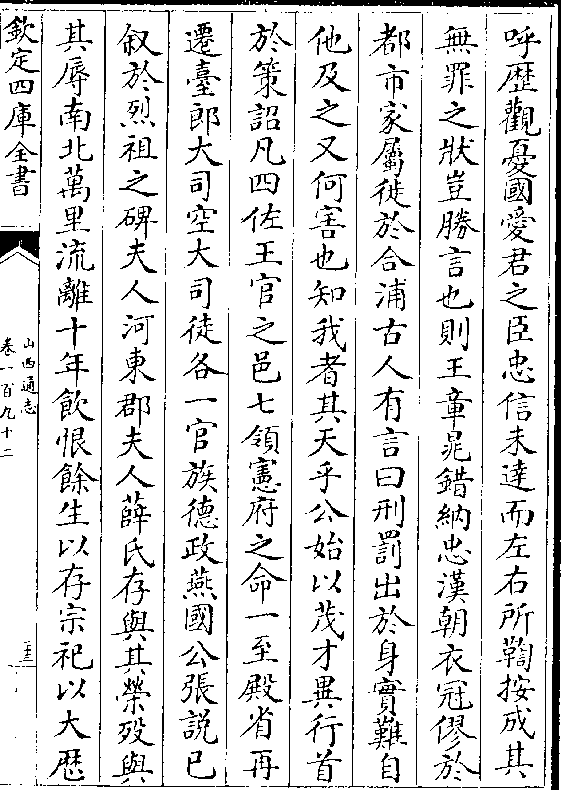 呼歴觀憂國愛君之臣忠信未達而左右所鞫按成其
無罪之狀豈勝言也則王章晁錯納忠漢朝衣冠僇於
都市家屬徙於合浦古人有言曰刑罰出於身實難自
他及之又何害也知我者其天乎公始以茂才異行首
於策詔凡四佐王官之邑七領憲府之命一至殿省再
遷臺郎大司空大司徒各一官族德政燕國公張説已
叙於烈祖之碑夫人河東郡夫人薛氏存與其榮歿與
其辱南北萬里流離十年飲恨餘生以存宗祀以大歴
欽定四庫全書
山西通志
卷一百九十二